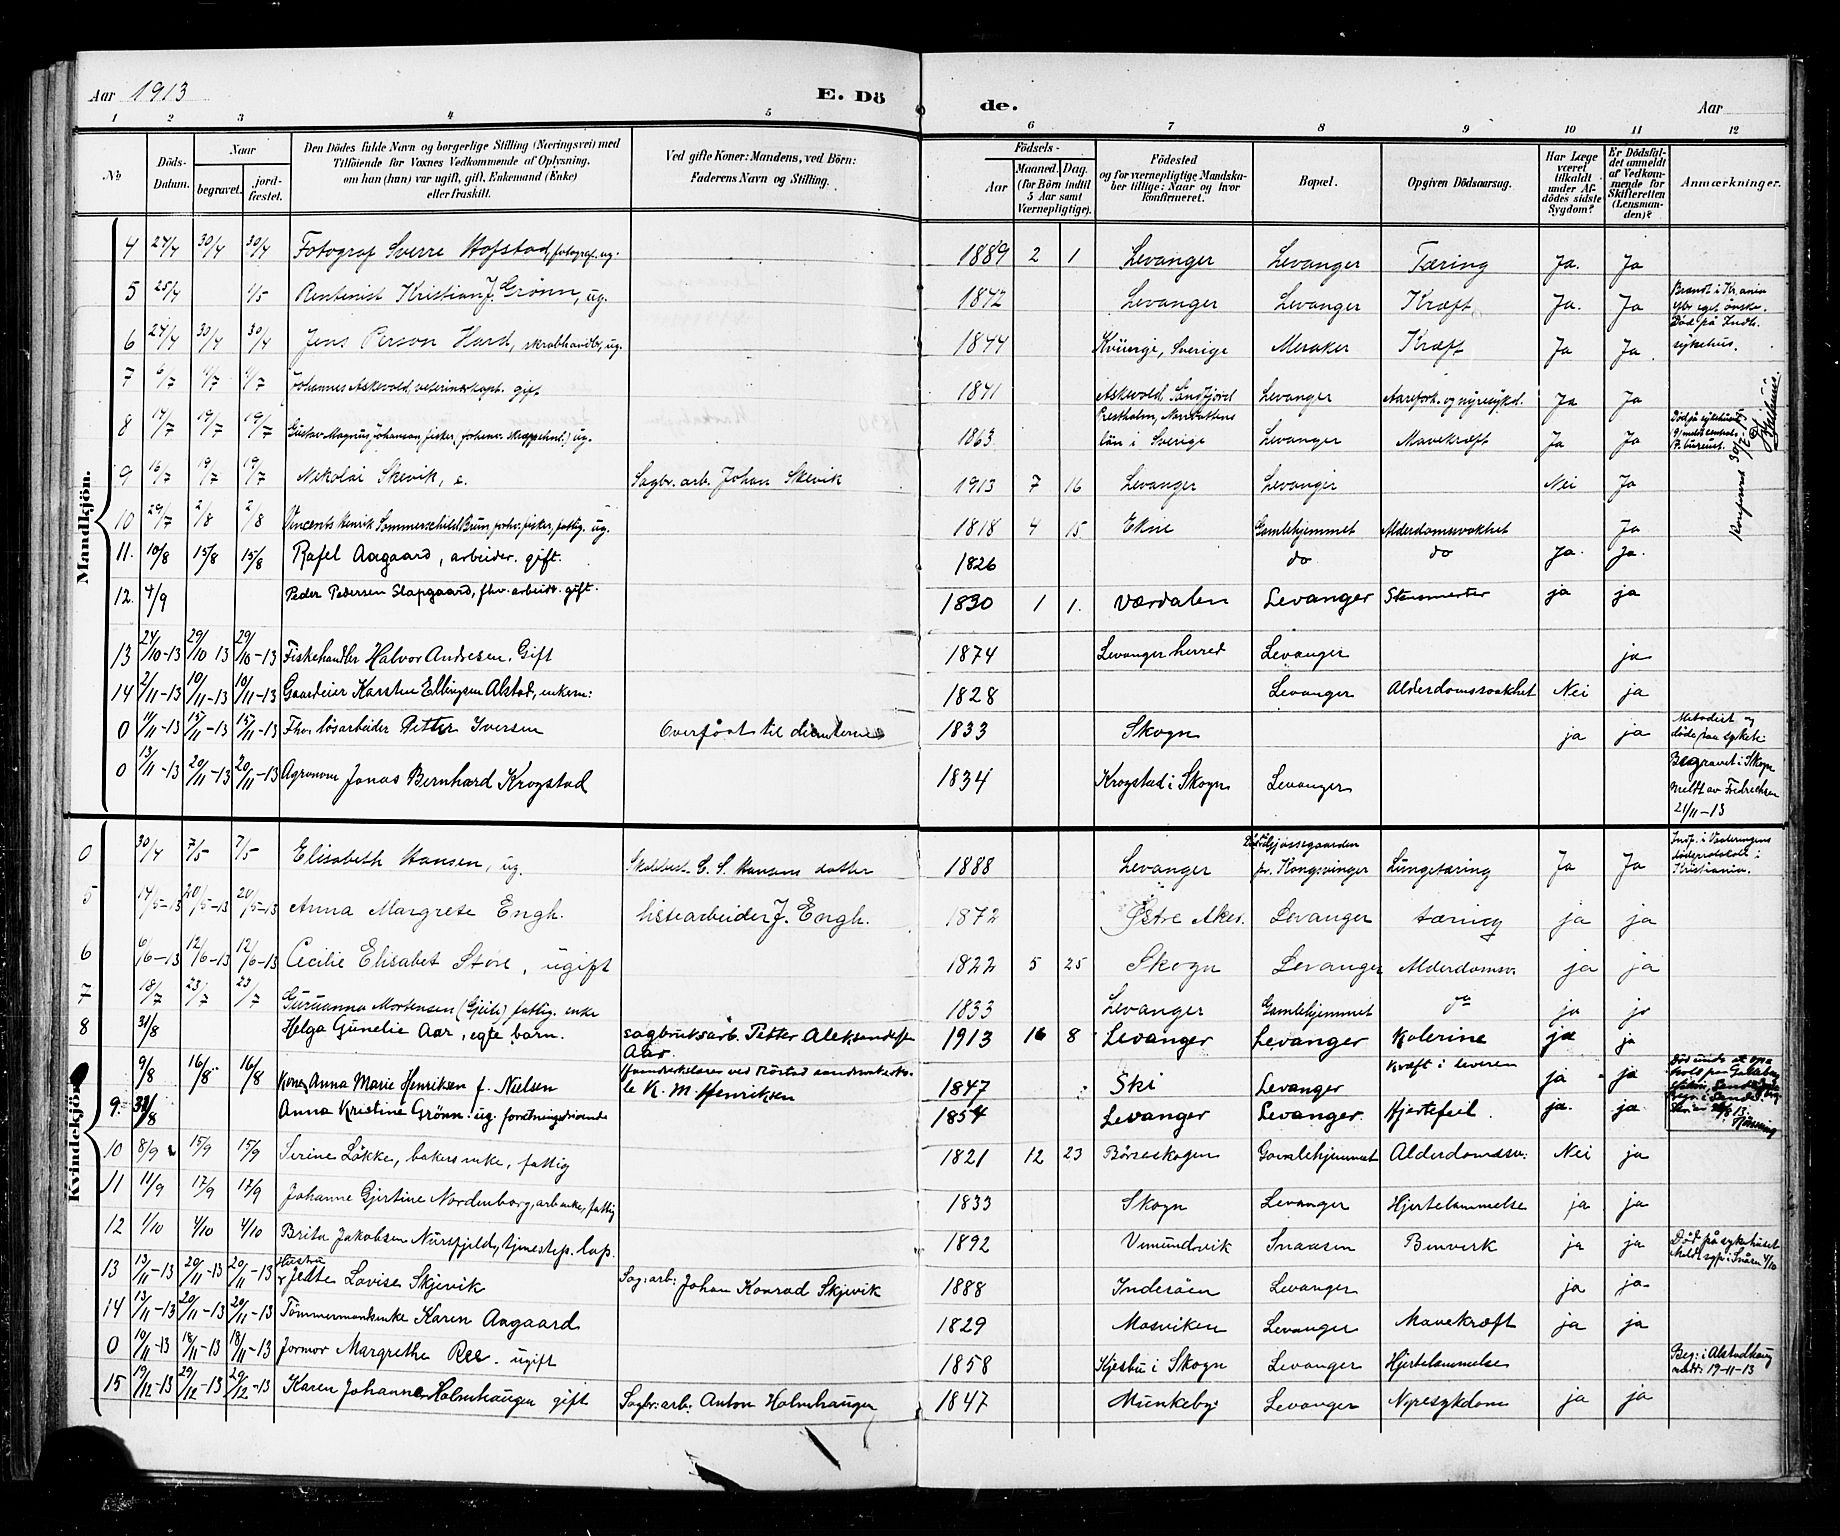 Aar 1913 E. Dö de. Aar
1 2 3 4 5 6 7 8 9 10 11 12
No
Döds-Datum.
Naar
begravet. jord-fæstet.
Den Dödes fulde Navn og borgerlige Stilling (Næringsvei) med
Tilföiende for Voxnes Vedkommende af Oplysning,
om han (hun) var ugift, gift, Enkemand (Enke)
eller fraskilt.
Ved gifte Koner: Mandens, ved Börn:
Faderens Navn og Stilling.
Födsels-
Aar Maaned. Dag.
(for Börn indtil
5 Aar samt
Værnepligtige).
Födested
og for værnepligtige Mandska-
ber tillige: Naar og hvor
konfirmeret.
Bopæl.
Opgiven Dödsaarsag.
Har Læge
været
tilkaldt
under Af-
dödes sidste
Sygdom?
Er Dödsfal-
det anmeldt
af Vedkom-
mende for
Skifteretten
(Lensman-
den)?
Anmærkninger.
Mandkjön.
4 24/4 30/4 30/4 Fotograf Sverre Hofstad, fotograf. ug. 1889 2 1 Levanger Levanger Tæring Ja. Ja
5 25/4 1/5 Rentenist Kristian J. Grönn, ug. 1842 Levanger Levanger Kræft Ja. Ja Brændt i Kr.ania eft. eget önske.
6 24/4 30/4 30/4 Jens Person Hard, skrabhandler, ug. 1844 Sverige Meraker Kræft Ja Ja. Död på Indh. sykehus.
7 6/7 11/7 11/7 Johannes Askevold, veterinærkapt. gift 1841 Askevold, Söndfjord Levanger Aarefork. og nyresykd. Ja Ja
8 14/7 19/7 19/7 Gustav Magnus Johanson, fisker, ug. 1863 län i Sverige Levanger Mavekræft Ja Ja Död på sykehuset
9 16/7 19/7 19/7 Nikolai Skevik, e. Sagbr. arb. Johan Skevik 1913 7 16 Levanger Levanger Nei Ja
10 29/7 2/8 2/8 Vincents Henrik Sommerschild Brun, forhv. fisker, fattig. ug. 1818 4 15 Ekne Gamlehjemmet Alderdomssvakhet Ja
Konfereret 30/7 13
11. 10/8 15/8 15/8 Rafel Aagaard, arbeider. gift. 1826 do do ja. ja.
12. 4/9 Peder Pedersen Slapgaard, fhv. arbeidr. gift. 1830 1 1. Værdalen Levanger Stensmerter ja ja
13 24/10-13 29/10 13 29/10-13 Fiskehandler Halvor Andresen. Gift 1874 Levanger herred Levanger ja
14 2/11-13 10/11-13 10/11-13 Gaardeier Karsten Ellingsen Alstad, enkem: 1828 Levanger Alderdomssvakhet Nei ja
0 11/11-13 15/11-13 15/11-13 Fhv. lösarbeider Petter Iversen Overföat til disenterne 1833 Skogn ja ja Metodist og döde paa sykeh:
0 13/11-13 20/11-13 20/11-13 Agronom Jonas Bernhard Krogstad 1834 Krogstad i Skogn Levanger Begravet i Skogn meldt av Fredrechsen 21/11-13
Kvindekjön.
0 30/4 7/5 7/5 Elisabeth Hansen, ug. Skolebest. C. S. Hansens datter 1888 Levanger pr. Kongsvinger Lungetæring Ja Ja Indf. i Vaalerengens dödsprotokol i Kristiania.
5 14/5-13 20/5-13 20/5-13 Anna Margrete Engh. listearbeider J. Engh. 1872 Østre Aker. Levanger tæring ja ja
6 6/6-13 12/6-13 12/6-13 Cecilie Elisabet Störe, ugift 1822 5 25 Skogn Levanger Alderdomsv. ja ja
7 18/7 23/7 23/7 Guruanna Mortensen (Gjeite) fattig. enke 1833 Levanger Gamlehjemmet do ja ja
8 31/8 Helga Gunelie Aar, egte barn. sagbruksarb. Petter Aleksander Aar. 1913 16 8 Levanger Levanger Kolerine ja ja
9/8 16/8 16/8 Kone Anna Marie Henriksen f. Nielsen K. M. Henriksen 1847 Ski Levanger Kræft i leveren ja ja
9. 31/8 Anna Kristine Grönn. ug. forretningsdrivende 1854 Levanger Levanger. Hjertefeil. ja. ja
10 8/9 15/9 15/9 Serine Lökke, bakers enke, fattig 1821 12 23 Börseskogen Gamlehjemmet Alderdomssv: Nei ja
11 11/9 17/9 17/9 Johanne Gjertine Nordenborg, arb. enke, fattig 1833 Skogn Levanger Hjertelammelse ja ja
12 1/10 4/10 4/10 Brita Jakobsen Nursfjeld, tjenestep. lap. 1892 Vemundvik Snaasen Benverk ja ja Död på sykehuset
13 13/11-13 20/11-13 20/11-13 Hustru Jette Lovise Skjevik Sag: arb: Johan Konrad Skjevik 1888 Inderöen Levanger ja ja
14 13/11-13 20/11-13 20/11-13 Tömmermandsenke Karen Aagaard 1829 Mosviken Levanger Mavekræft ja ja
0 10/11-13 18/11-13 18/11-13 Jormor Margrethe Ree. ugift 1858 Kjesbu i Skogn Levanger Hjertelammelse Beg: i Alstadhaug meldt: 19-11-13
15 19/12-13 29/12-13 29/12-13 Karen Johanne Holmhaugen gift Sagbr: arb: Anton Holmhaugen 1847 Munkeby Levanger Nyresykdom ja ja